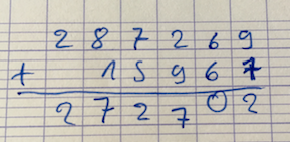 2 8 7 2 6 9
+ 1 5 9 6 7
2 7 2 7 0 2